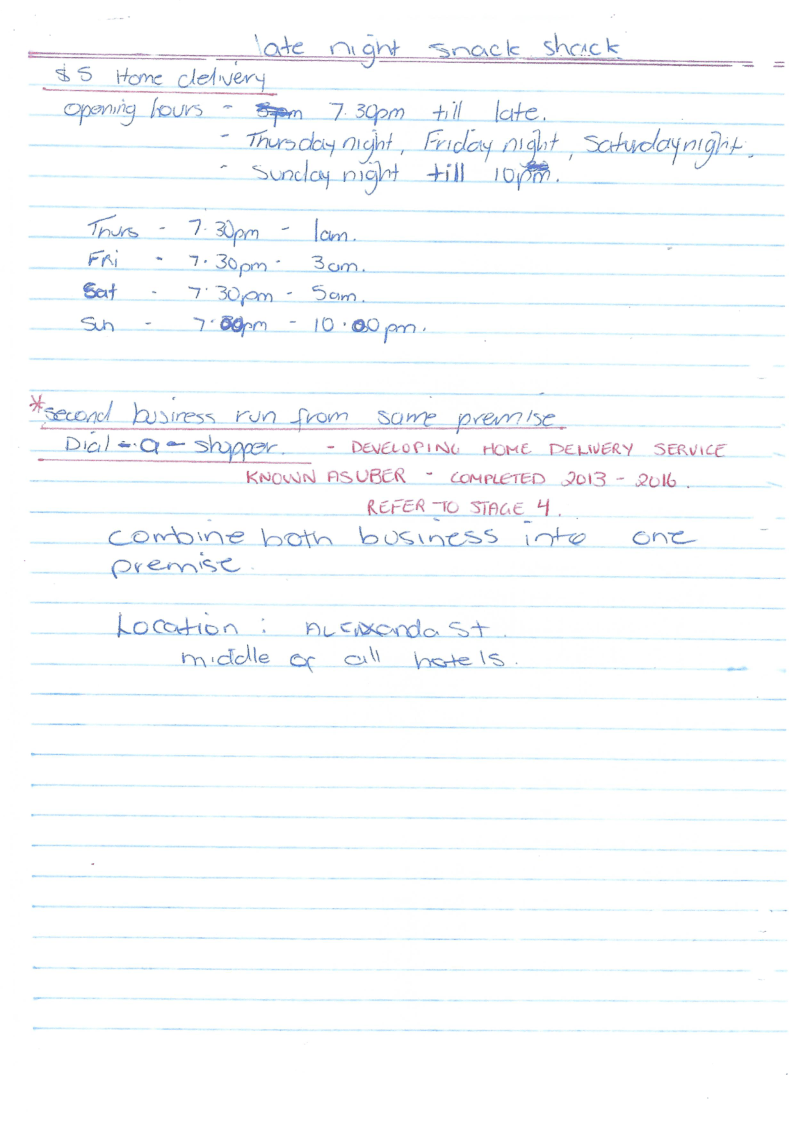 late night snack shack
$5 Home delivery
opening hours - 7.30pm till late.
- Thursday night, Friday night, Saturday night.
- Sunday night till 10pm.
Thurs - 7.30pm - 1am.
FRi - 7.30pm - 3am.
Sat - 7.30pm - 5am.
Sun - 7.00pm - 10.00pm.
*second business run from same premise
Dial-a-shopper. - DEVELOPING HOME DELIVERY SERVICE
KNOWN AS UBER - COMPLETED 2013 - 2016.
REFER TO STAGE 4.
combine both business into one
premise.
Location : ALEXANDA St.
middle of all hotels.